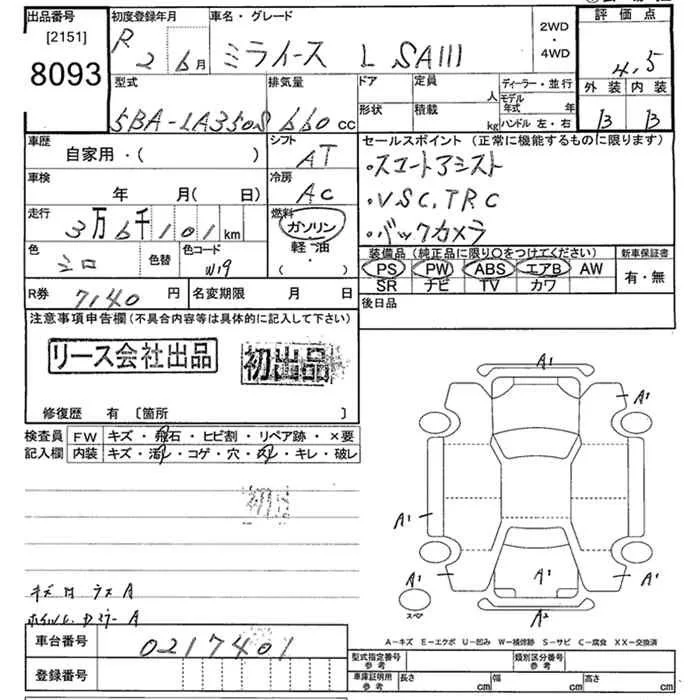 出品番号
[2151]
8093
初度登録年月
R 2 6月
車名・グレード
ミライース L SAIII
2WD
・
4WD
評価点
4.5
外装 内装
B B
型式
5BA-LA350S
排気量
660 cc
ドア
形状
定員
人
積載
kg
ディーラー・並行
モデル年式 年
ハンドル 左・右
車歴
自家用・( )
シフト
AT
車検
年 月(日)
冷房
AC
走行
3万6千101km
燃料
ガソリン
軽油
・( )
色
シロ
色替
色コード
W19
R券
7140円
名変期限 月 日
セールスポイント(正常に機能するものに限ります)
・スマートアシスト
・VSC, TRC
・バックカメラ
装備品(純正品に限り○をつけてください)
PS PW ABS エアB AW
SR ナビ TV カワ
新車保証書
有・無
後日品
注意事項申告欄(不具合内容等は具体的に記入して下さい)
リース会社出品
初出品
修復歴 有 〔箇所 〕
検査員
記入欄
FW キズ・飛石・ヒビ割・リペア跡・×要
内装 キズ・汚れ・コゲ・穴・ キレ・破レ
A1
A1
A1
A1
A1
A1
A1
A2
スペア
A-キズ E-エクボ U-凹み W-補修跡 S-サビ C-腐食 XX-交換済
車台番号
0217401
登録番号
型式指定番号
参考
類別区分番号
参考
車庫証明用
参考
長さ cm
幅 cm
高さ cm